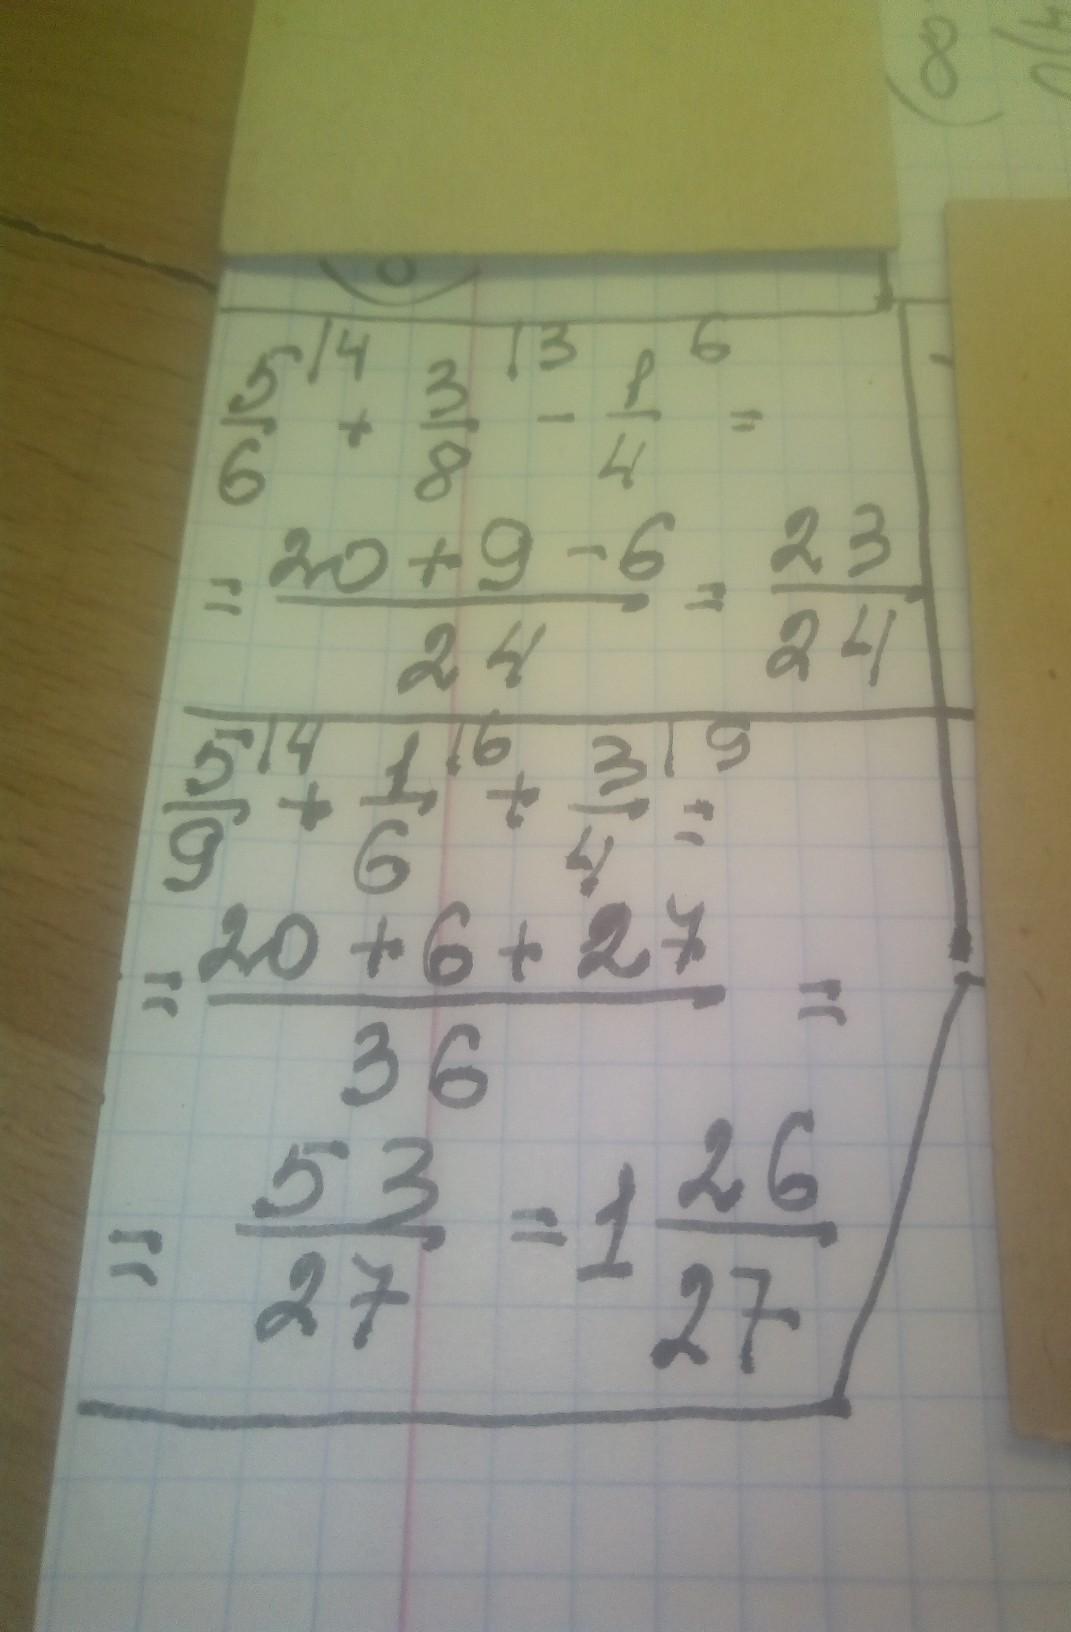 5/6 |4 + 3/8 |3 - 1/4 6 =
= (20 + 9 - 6)/24 = 23/24
5/9 |4 + 1/6 |6 + 3/4 |9 =
= (20 + 6 + 27)/36 =
= 53/27 = 1 26/27